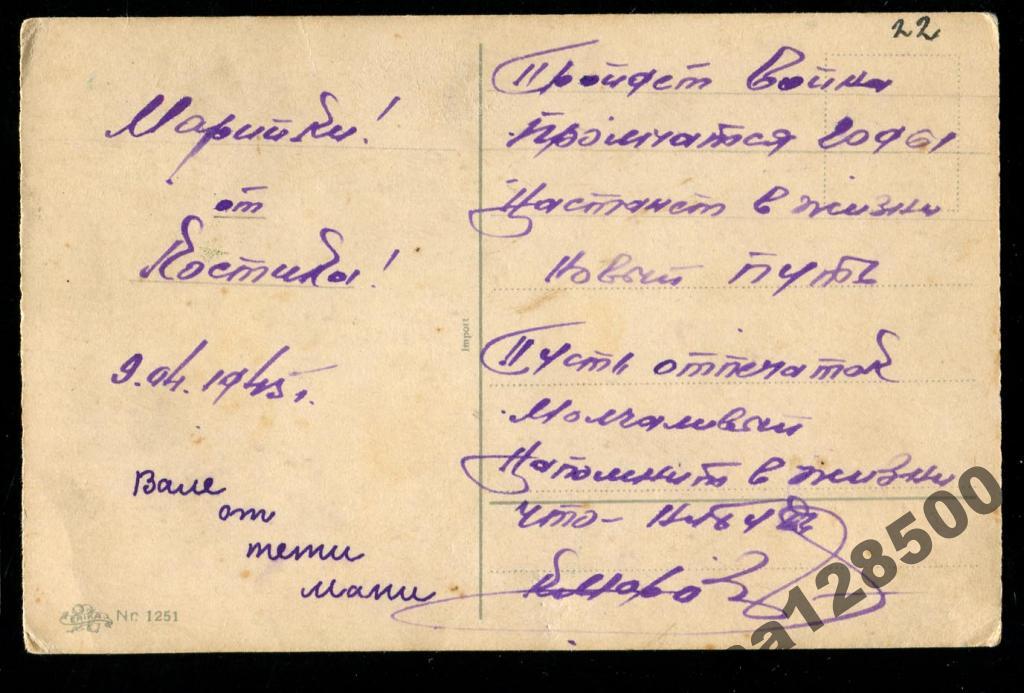 22
Марийки!
от
Костика!
9.04.1945 г.
Вале
от
тети
Мани
Nr. 1251
Import
Пройдет Война
Промчатся годы
Настанет в жизни
Новый путь
Пусть отпечаток
Молчаливый
Напомнит в жизни
Что-нибудь
a128500